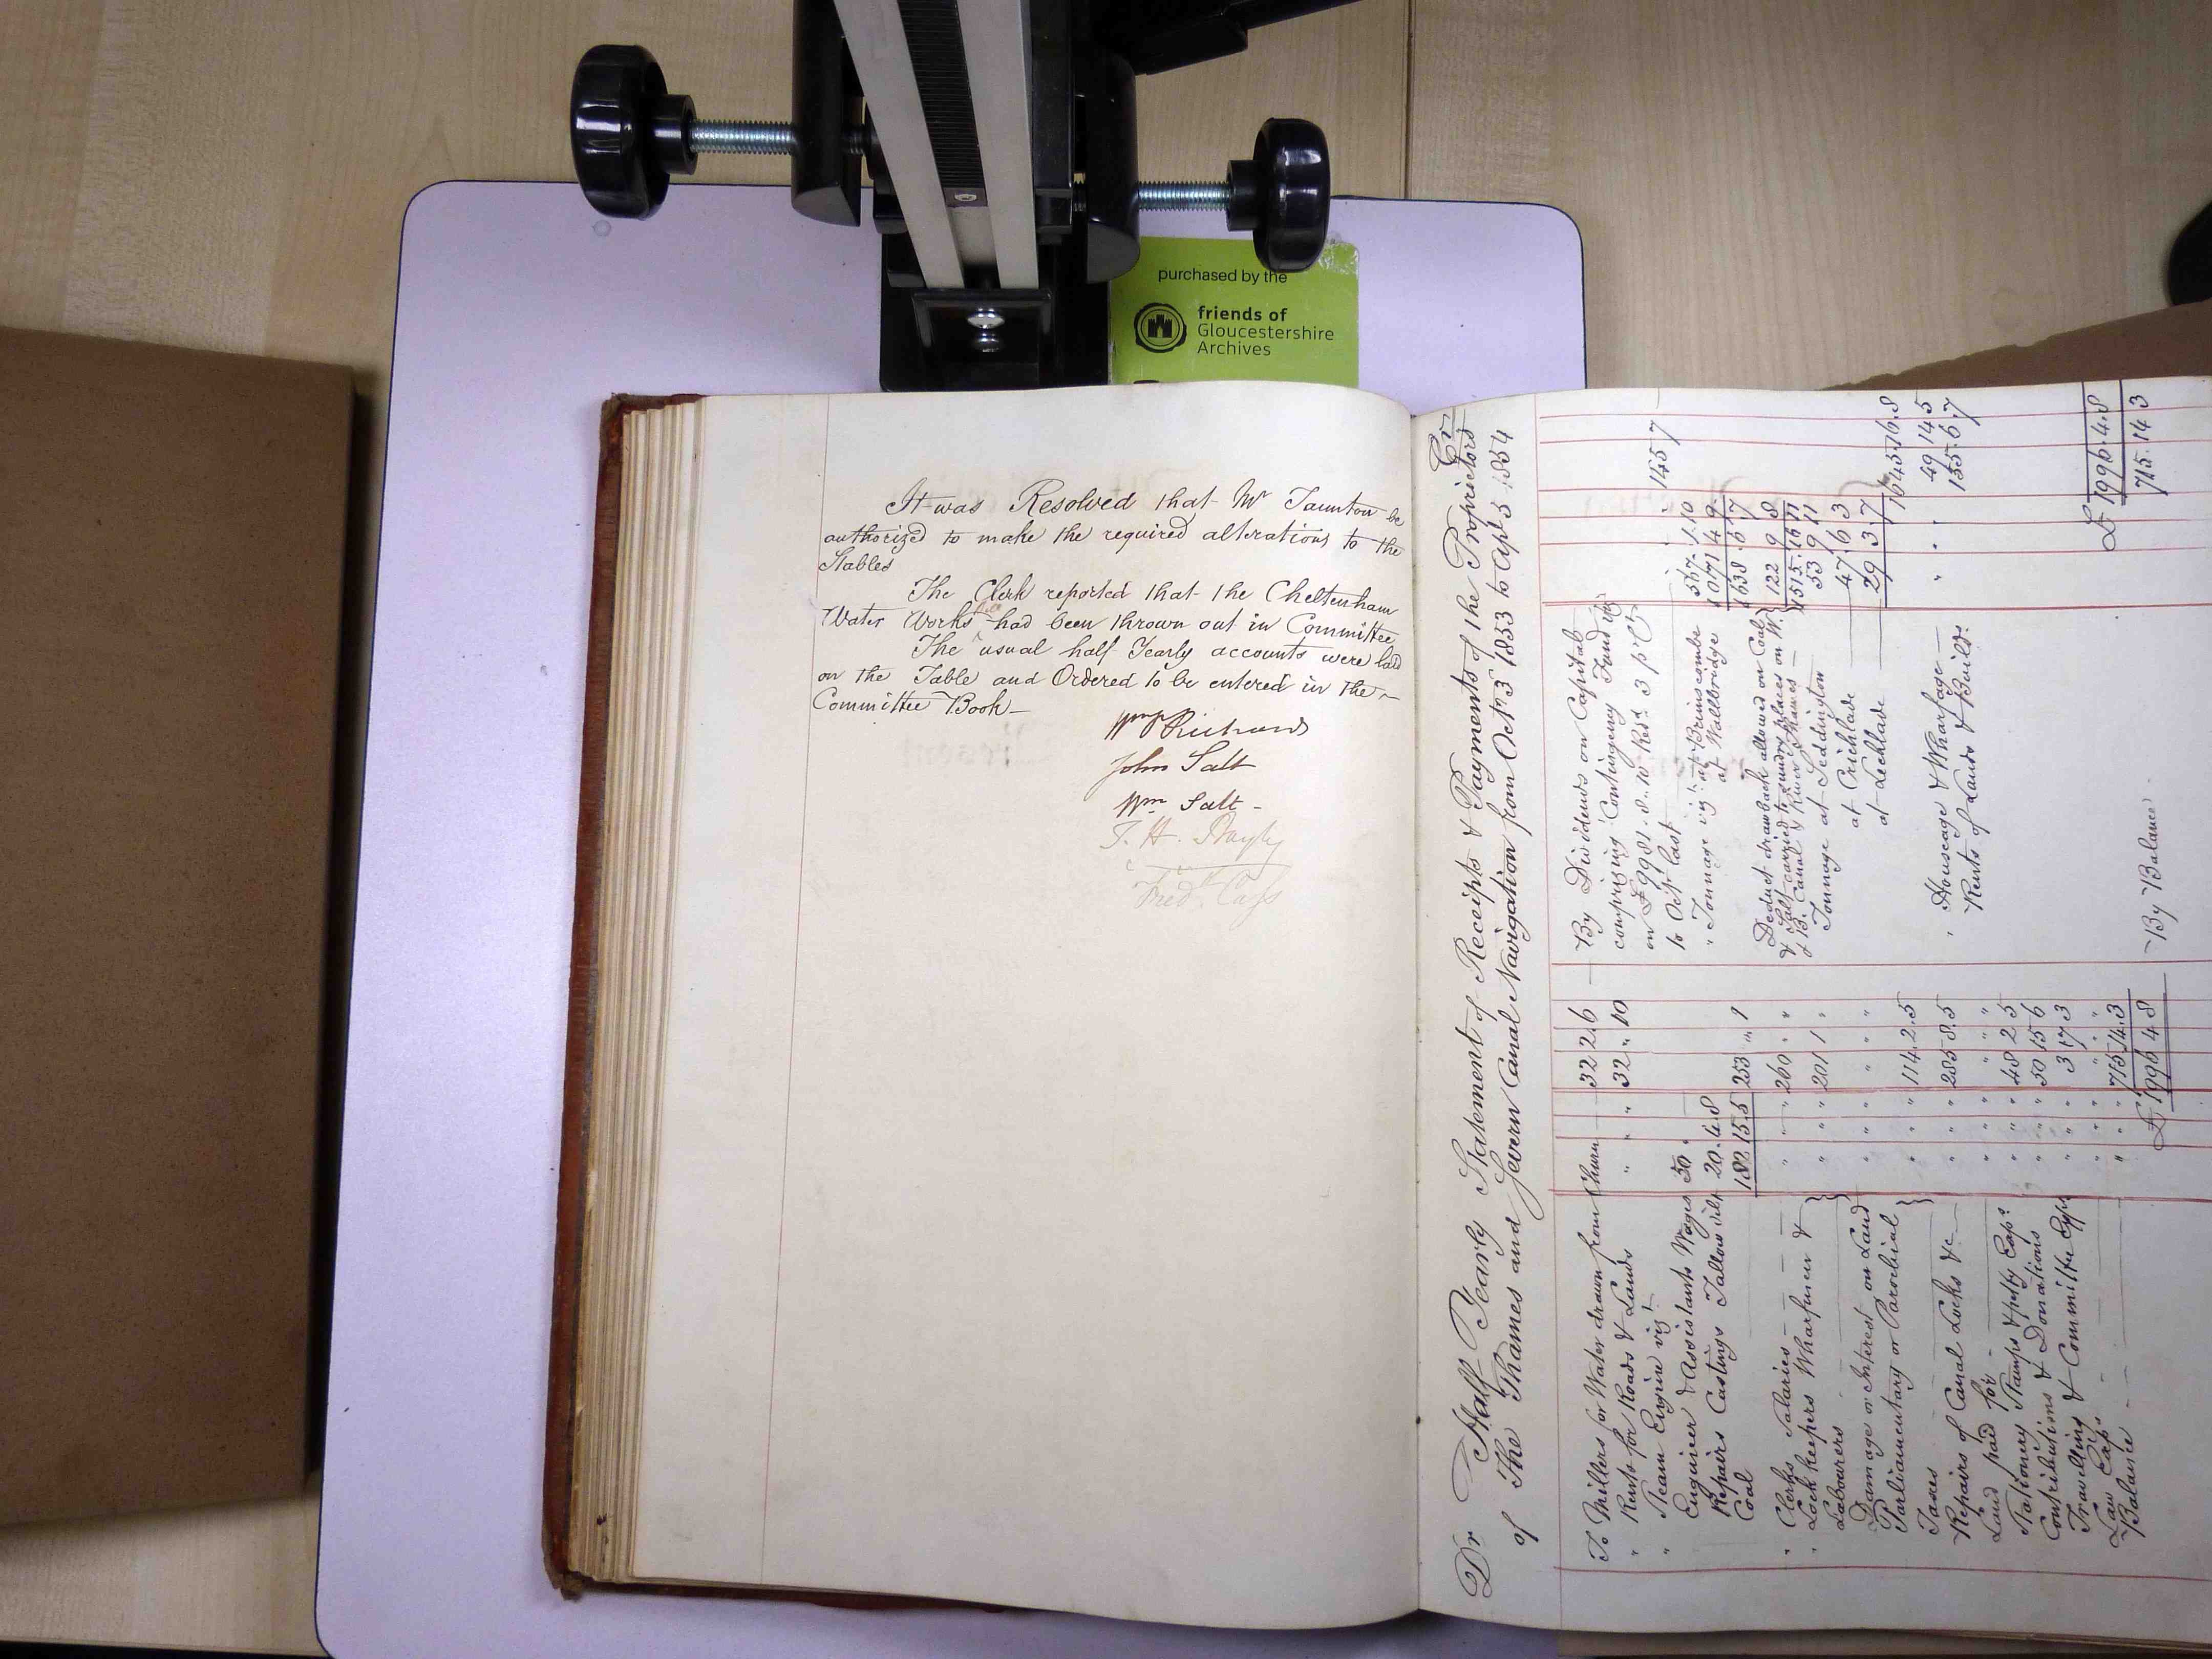 purchased by the
friends of
Gloucestershire
Archives
It was Resolved that Mr Taunton be
authorized to make the required alterations to the
Stables
The Clerk reported that the Cheltenham
Water Works Bill had been thrown out in Committee
The usual half Yearly accounts were laid
on the Table and Ordered to be entered in the
Committee Book
John Salt
Wm Salt
Dr Half Yearly Statement of Receipts & Payments of the Proprietors Cr
of The Thames and Severn Canal Navigation from Oct 3 1853 to Apl 3 1854
To Millers for Water drawn from Churn 32 2. 6
" Rents for Roads & Lands " " 32 " 10
" Steam Engine viz
Enquirer & Assistants Wages 50 "
Repairs Castings Tallow 20. 4. 8
Coal 182 15. 5 253 " 1
" Clerks Salaries " " 260 " "
" Lock keepers Wharfiner &
Labourers } " " 201 1 "
Damage or Interest on Land " " "
Parliamentary or Parochial
Taxes } " " 114. 2. 5
Repairs of Canal Locks &c " " 285 8. 5
Land paid for " " " "
Stationery Stamps & petty Exps " " 48 2 5
Contributions & Donations " " 50 15 6
Travelling & Committee Exps " " 3 17 3
Law Exps " " " "
Balance " " 715. 14. 3
£1996 4. 8
By Dividends on Capital
comprising Contingency Fund viz
on £9981. 8. 10 Red 3 p Ct
to Oct last 145 7
" Tonnage viz at Brimscombe 567. 1. 10
at Wallbridge 1071 4 9
1638. 6. 7
Deduct drawback allowed on Coal
& Salt carried to sundry places on W.
& B. Canal & River Thames } 122 9 8
1515. 16 11
Tonnage at Siddington 53 9 11
at Cricklade 47. 6 3
at Lechlade 29 3. 7
1645. 16. 8
" Houseage & Wharfage " " 49 14 5
Rents of Lands & Builds. " " 155. 6. 7
£1996. 4. 8
By Balance 715. 14 3